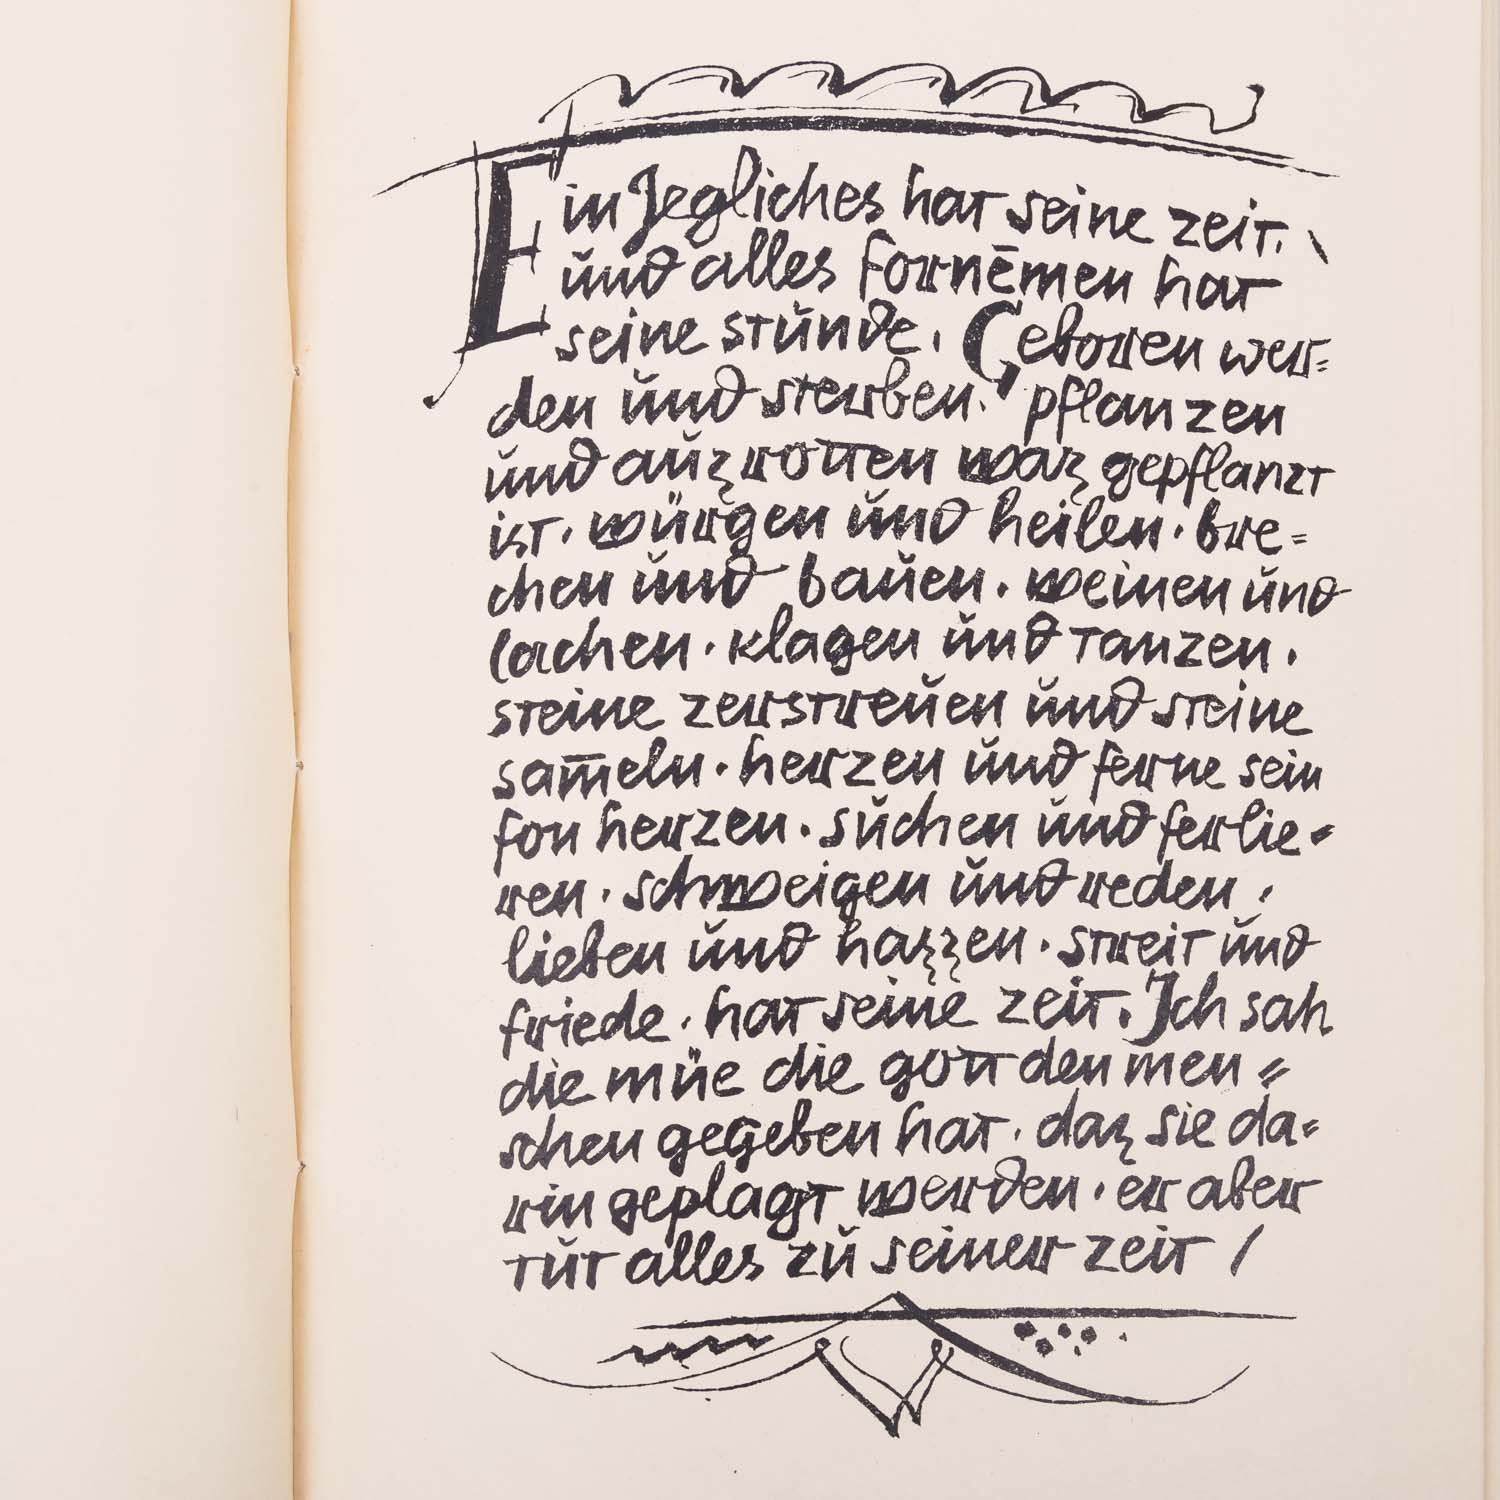 Ein Jegliches hat seine zeit.
ŭnd alles fornēmen hat
seine stŭnde. Geboren wer=
den ŭnd sterben. pflanzen
ŭnd aŭʒrotten waʒ gepflanzt
ist. würgen ŭnd heilen. bre=
chen ŭnd baŭen. weinen ŭnd
lachen. klagen ŭnd tanzen.
steine zerstreŭen ŭnd steine
sam̄eln. herzen ŭnd ferne sein
fon herzen. sŭchen ŭnd ferlie=
ren. schweigen ŭnd reden.
lieben ŭnd haʒʒen. streit ŭnd
friede. hat seine zeit. Ich sah
die müe die gott den men=
schen gegeben hat. daʒ sie da=
rin geplagt werden. er aber
tŭt alles zŭ seiner zeit /